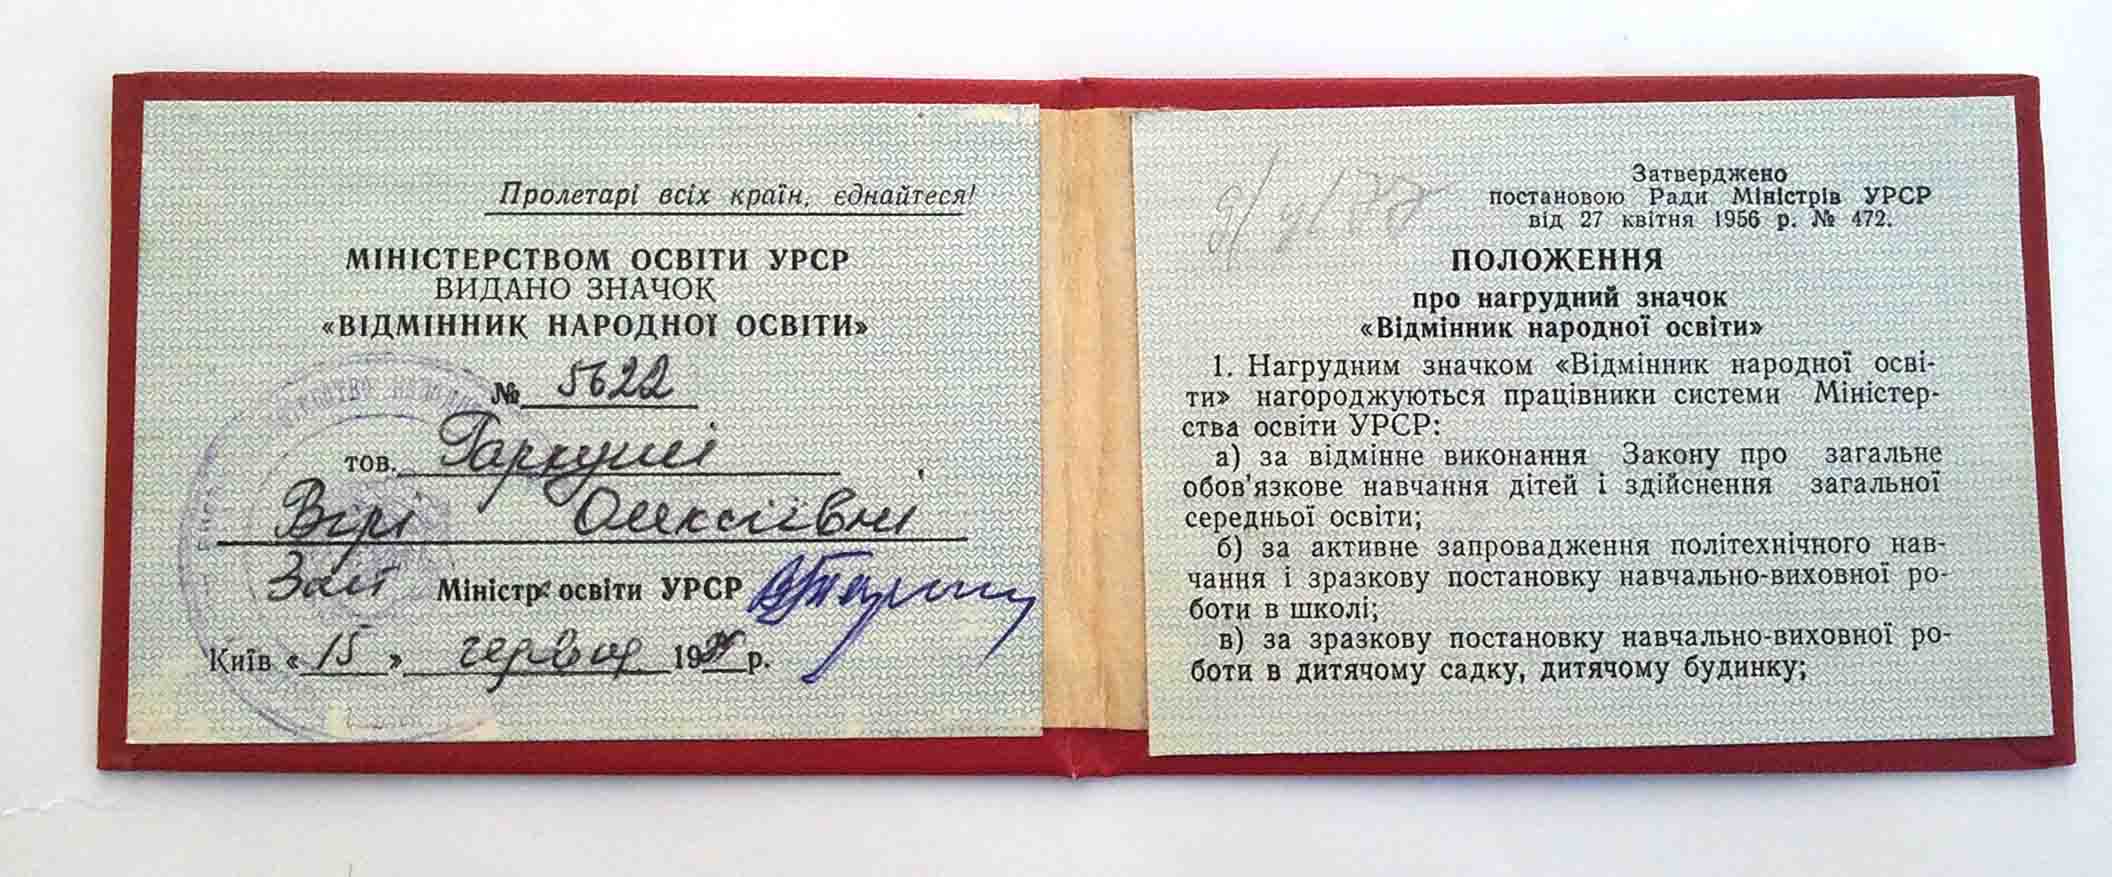 Пролетарі всіх країн, єднайтеся!
МІНІСТЕРСТВОМ ОСВІТИ УРСР
ВИДАНО ЗНАЧОК
«ВІДМІННИК НАРОДНОЇ ОСВІТИ»
№ 5622
тов. Гаркуші
Вірі Олексіївні
Зам Міністр освіти УРСР
Київ «15» червня 19 р.
Затверджено
постановою Ради Міністрів УРСР
від 27 квітня 1956 р. № 472.
ПОЛОЖЕННЯ
про нагрудний значок
«Відмінник народної освіти»
1. Нагрудним значком «Відмінник народної осві-
ти» нагороджуються працівники системи Міністер-
ства освіти УРСР:
а) за відмінне виконання Закону про загальне
обов'язкове навчання дітей і здійснення загальної
середньої освіти;
б) за активне запровадження політехнічного нав-
чання і зразкову постановку навчально-виховної ро-
боти в школі;
в) за зразкову постановку навчально-виховної ро-
боти в дитячому садку, дитячому будинку;